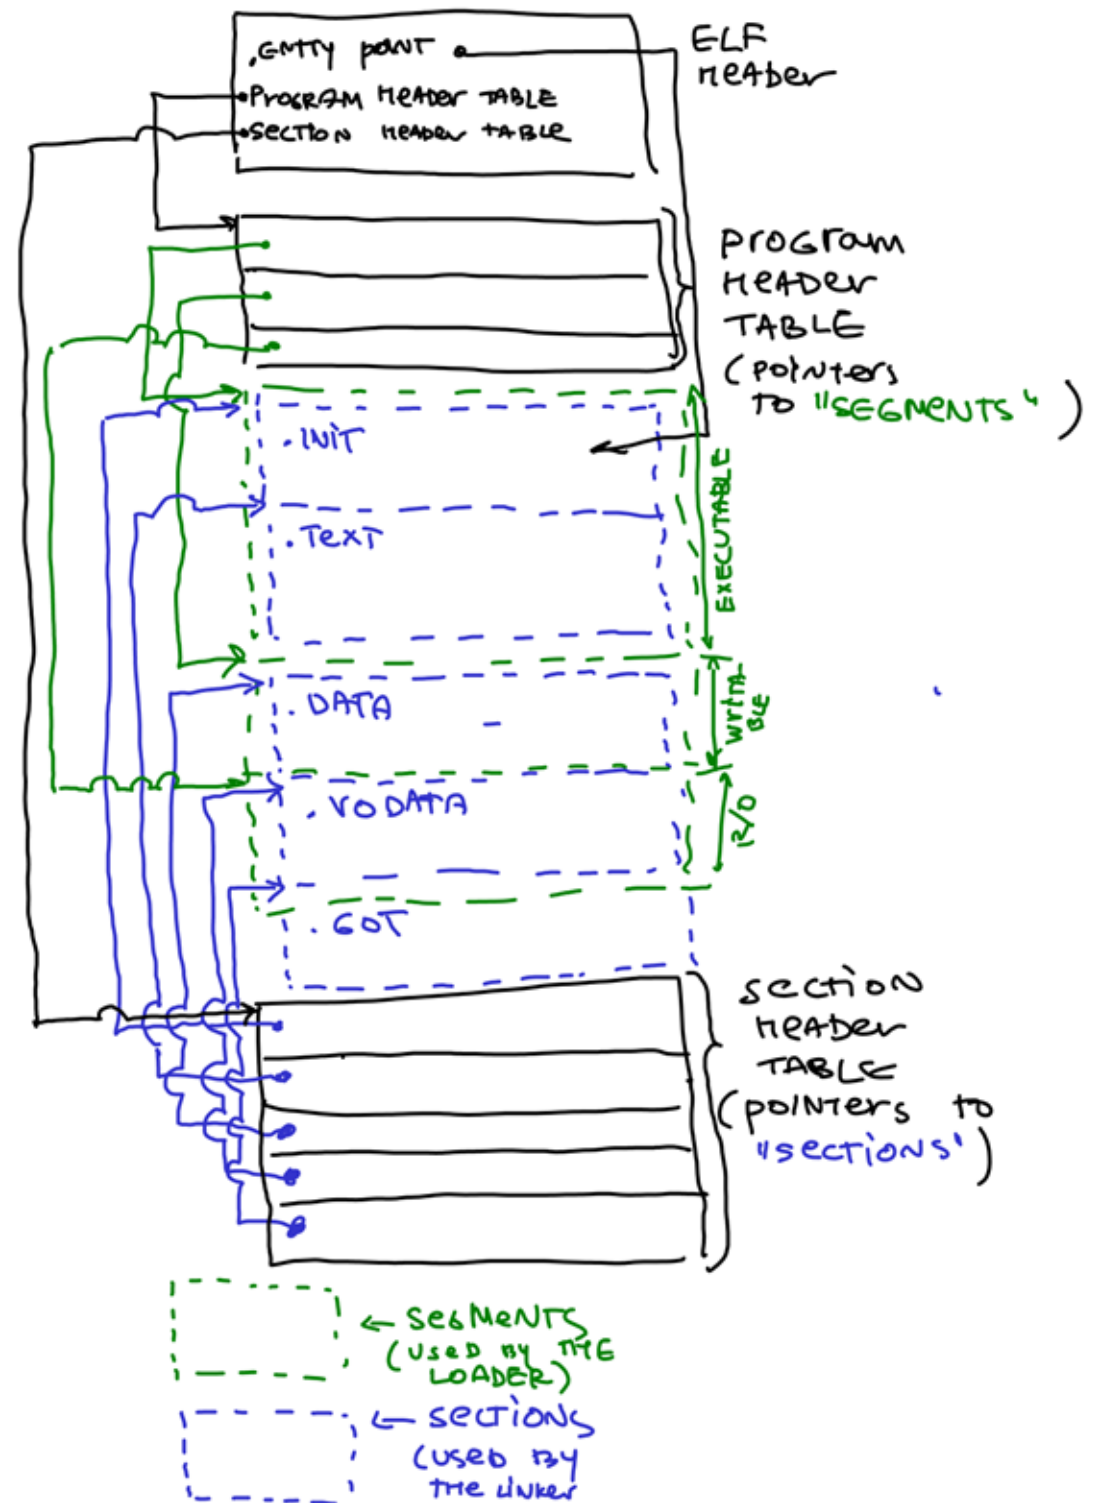 .ENTTY POINT
PROGRAM HEADER TABLE
SECTION HEADER TABLE
ELF
HEADER
PROGRAM
HEADER
TABLE
(POINTERS
TO "SEGMENTS")
.INIT
.TEXT
EXECUTABLE
.DATA
WRITA
BLE
.RODATA
R/O
.GOT
SECTION
HEADER
TABLE
(POINTERS TO
"SECTIONS")
← SEGMENTS
(USED BY THE
LOADER)
← SECTIONS
(USED BY
THE LINKER